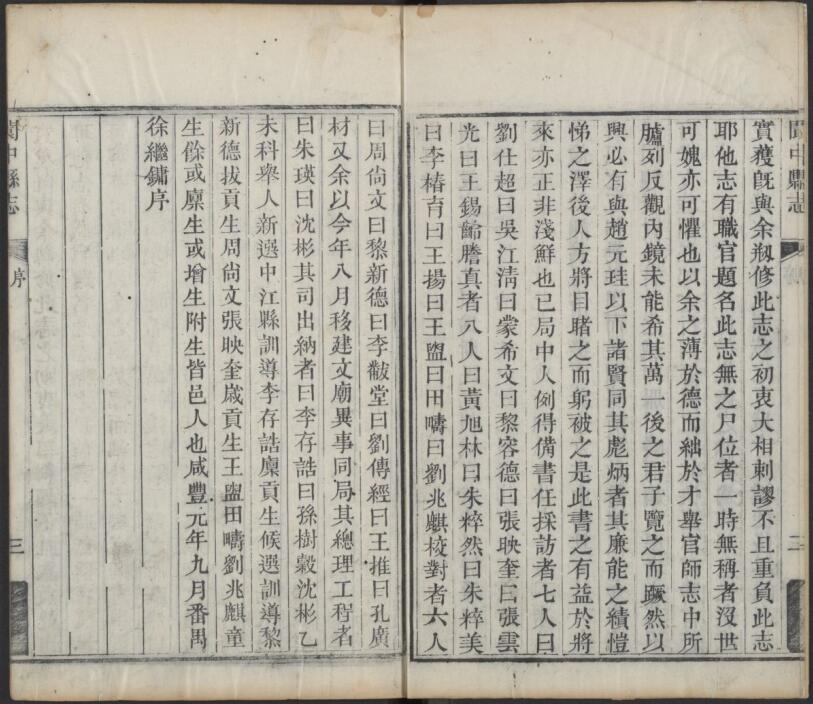 閬中縣志
序
二
實穫旣與余剏修此志之初衷大相剌謬不且重負此志
耶他志有職官題名此志無之尸位者一時無稱者沒世
可媿亦可懼也以余之薄於德而絀於才舉官師志中所
臚列反觀內鏡未能希其萬一後之君子覽之而蹶然以
興必有與趙元珪以下諸賢同其彪炳者其廉能之績愷
悌之澤後人方將目睹之而躬被之是此書之有益於將
來亦正非淺鮮也已局中人例得備書任採訪者七人曰
劉仕超曰吳江淸曰蒙希文曰黎容德曰張映奎曰張雲
光曰王錫齡謄真者八人曰黃旭林曰朱粹然曰朱粹美
曰李椿育曰王揚曰王盥曰田疇曰劉兆麒校對者六人
曰周尙文曰黎新德曰李黻堂曰劉傳經曰王推曰孔廣
材又余以今年八月移建文廟異事同局其總理工程者
曰朱瑛曰沈彬其司出納者曰李存誥曰孫樹穀沈彬乙
未科舉人新選中江縣訓導李存誥廩貢生候選訓導黎
新德拔貢生周尙文張映奎歲貢生王盥田疇劉兆麒童
生餘或廩生或增生附生皆邑人也咸豐元年九月番禺
徐繼鏞序
閬中縣志
序
三